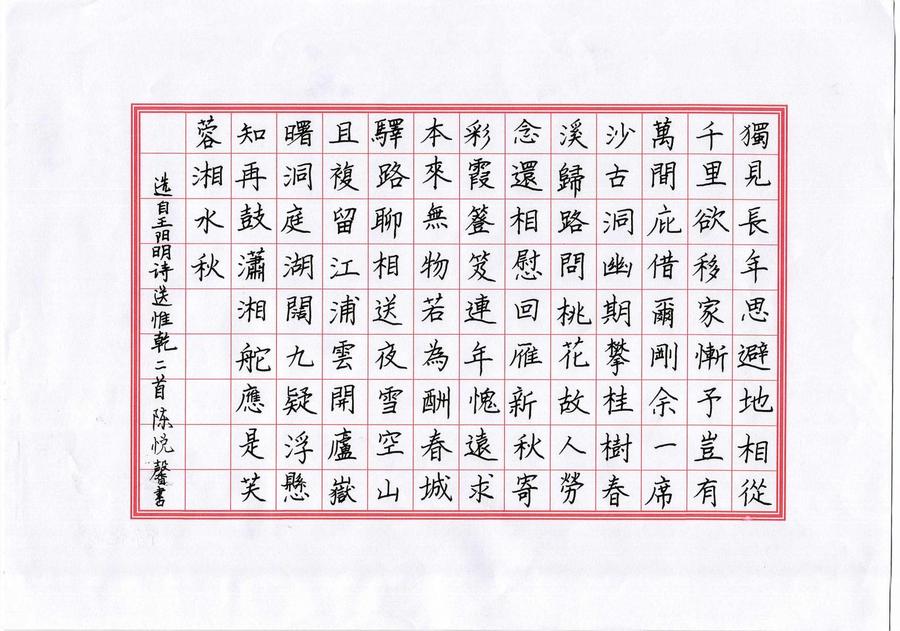 獨見長年思避地相從
千里欲移家慚予豈有
萬間庇借爾剛余一席
沙古洞幽期攀桂樹春
溪歸路問桃花故人勞
念還相慰回雁新秋寄
彩霞簦笈連年愧遠求
本來無物若為酬春城
驛路聊相送夜雪空山
且複留江浦雲開廬嶽
曙洞庭湖闊九疑浮懸
知再鼓瀟湘舵應是芙
蓉湘水秋
选自王阳明诗送惟乾二首 陈悦馨書